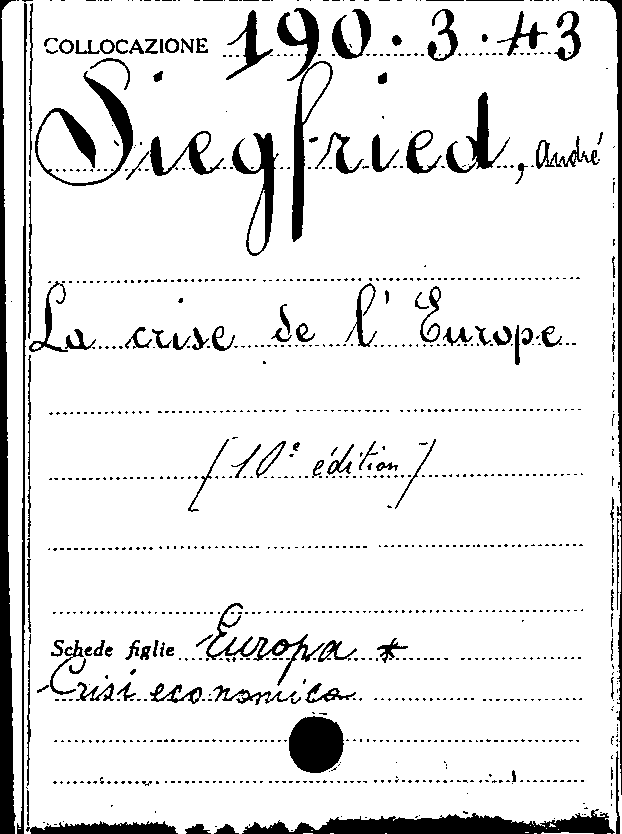 COLLOCAZIONE 190.3.43
Siegfried, André
La crise de l'Europe
[10e édition]
Schede figlie Europa *
Crisi economica